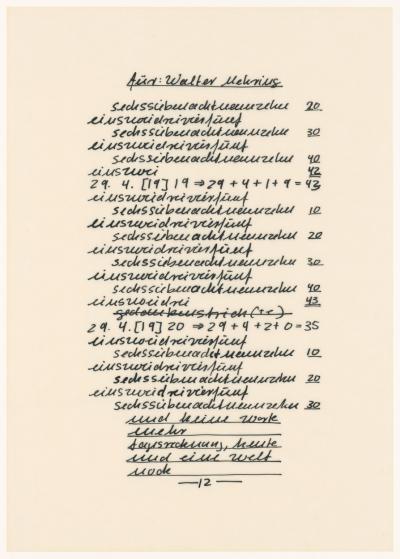 Für: Walter Mehring
sechssiebenachtneunzehn 20
einszweidreivierfünf
sechssiebenachtneunzehn 30
einszweidreivierfünf
sechssiebenachtneunzehn 40
einszwei 42
29. 4. [19] 19 ⇒ 29 + 4 + 1 + 9 = 43
einszweidreivierfünf
sechssiebenachtneunzehn 10
einszweidreivierfünf
sechssiebenachtneunzehn 20
einszweidreivierfünf
sechssiebenachtneunzehn 30
einszweidreivierfünf
sechssiebenachtneunzehn 40
einszweidrei 43
gedankenstrich
29. 4. [19] 20 ⇒ 29 + 4 + 2 + 0 = 35
einszweidreivierfünf
sechssiebenachtneunzehn 10
einszweidreivierfünf
sechssiebenachtneunzehn 20
einszweidreivierfünf
sechssiebenachtneunzehn 30
und keine worte
mehr
tagesrechnung, heute
und eine welt
noch
— 12 —